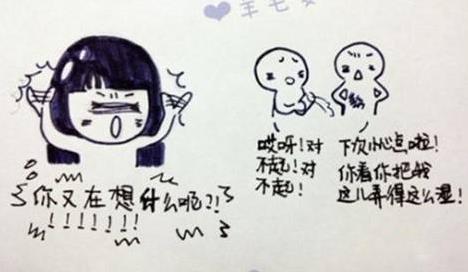 你又在想什么呢?!
!!!!!!
哎呀!对
不起!对
不起!
下次小心点啦!
你看你把我
这儿弄得这么湿!